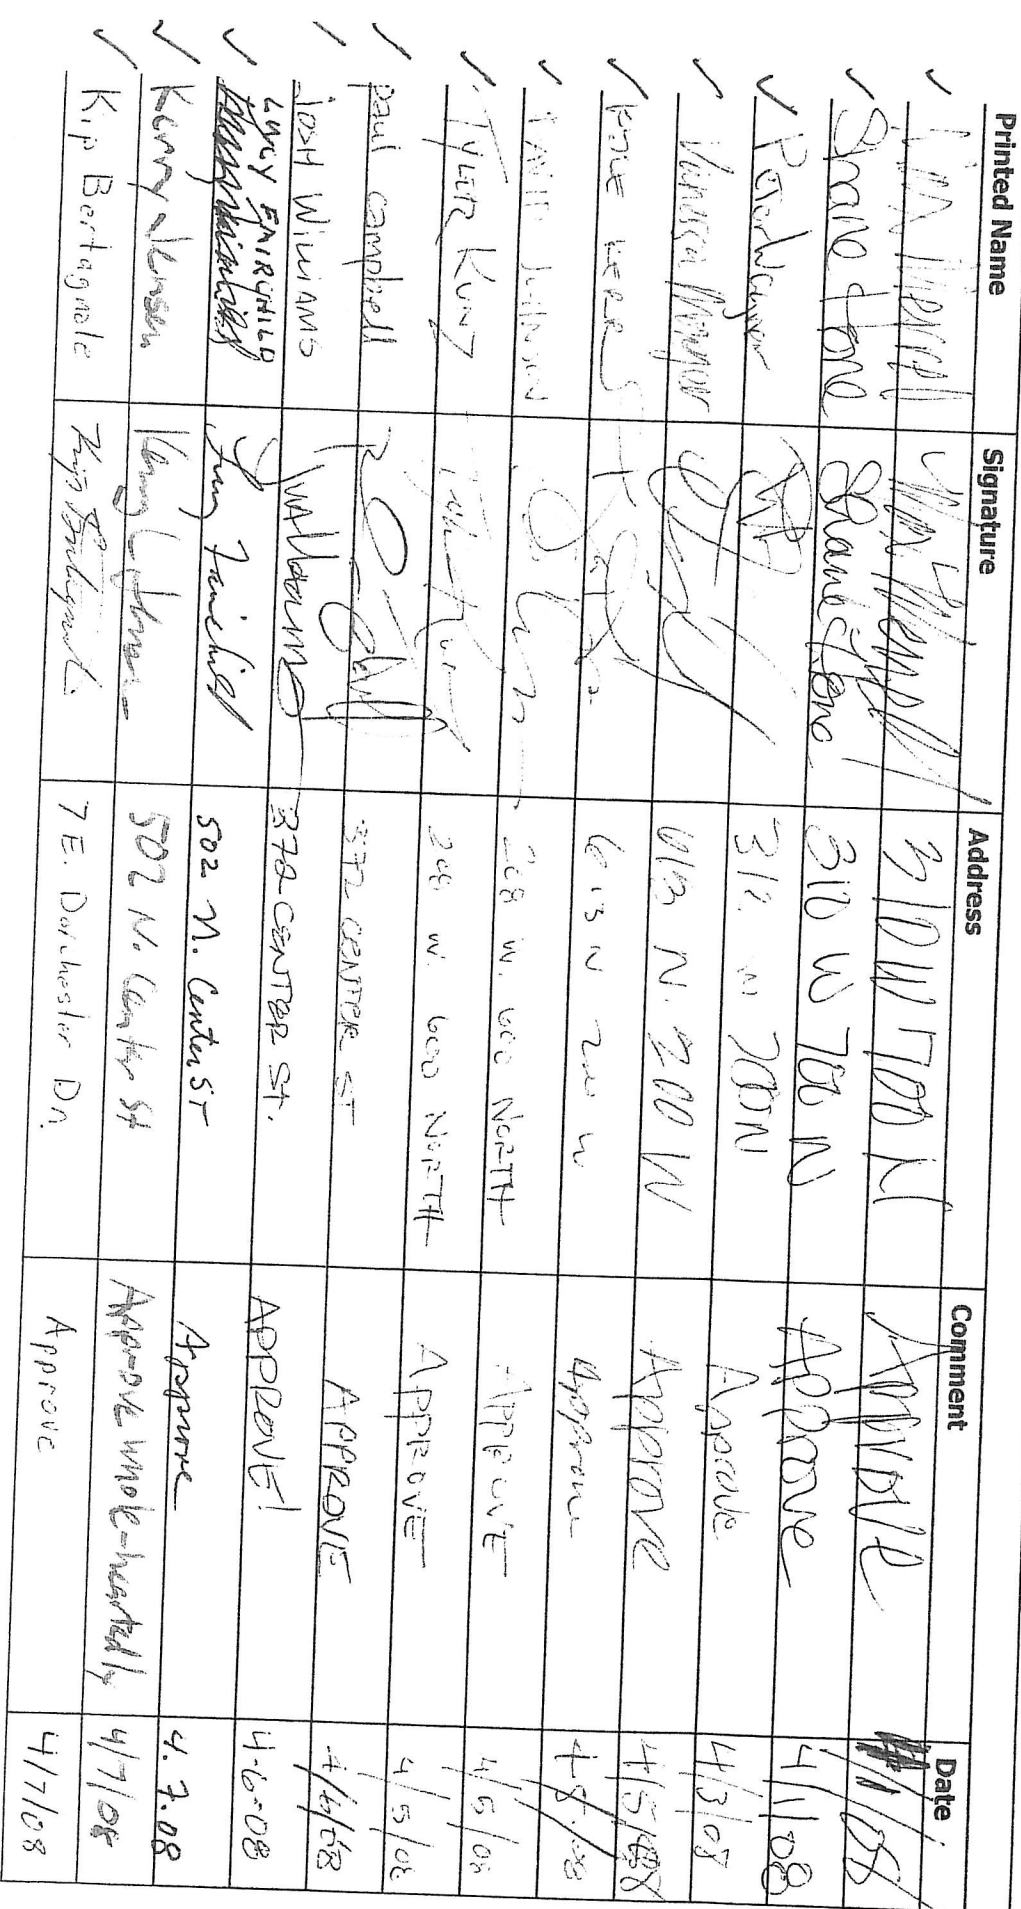 Printed Name Signature Address Comment Date
310 W 700 N Approve
Shane Hone Shane Hone 310 W 700 N APProve 4/1/08
Peter 310 W 700N Approve 4/3/08
Vanessa 613 N. 200 W Approve
613 N 200 W Approve
208 W. 600 NORTH APPROVE 4/5/08
TYLER KUNZ 208 W. 600 NORTH APPROVE 4/5/08
paul campbell 372 CENTER ST APPROVE 4/6/08
JOSH WILLIAMS 372 CENTER ST. APPROVE! 4-6-08
LUCY FAIRCHILD Lucy Fairchild 502 N. Center ST Approve 4.7.08
Kerry Jensen 502 N. Center St Approve whole-heartedly 4/7/08
Kip Bertagnole 7 E. Dorchester Dr. Approve 4/7/08